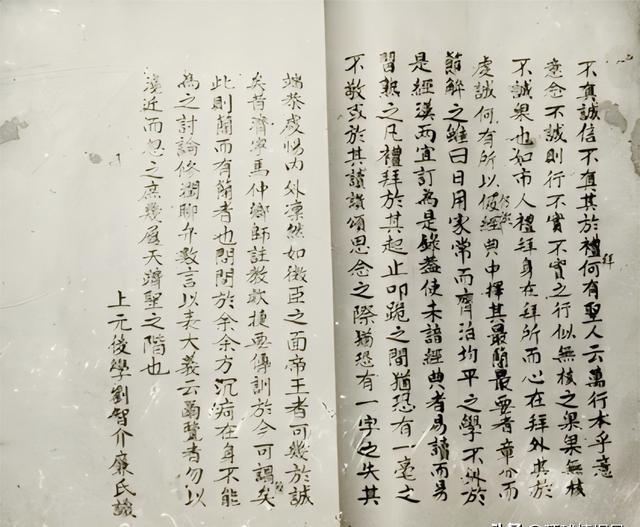 不真誠信不真其於禮拜何有聖人云萬行本乎意
意念不誠則行不實不實之行似無核之果果無核
不誠果也如市人禮拜身在拜所而心在拜外其於
虔誠何有所以彼於經典中擇其最簡最要者章分而
節解之雖曰日用家常而齊治均平之學不外於
是經漢兩宜訂為是錄蓋使未諳經典者易讀而易
習熟之凡禮拜於其起止叩跪之間猶恐有一毫之
不敬或於其讀頌思念之際猶恐有一字之失其
端恭虔惕内外凛然如微臣之面帝王者可幾於誠
矣昔濟寧馬仲師註教欵捷要傳訓於今可謂矣
此則蘭而有蘭者也於余余方沉疴在身不能
為之討論修潤聊弁數言以表大義云爾覽者勿以
淺近而忽之庶幾天躋聖之階也
上元後學劉智介廉氏識